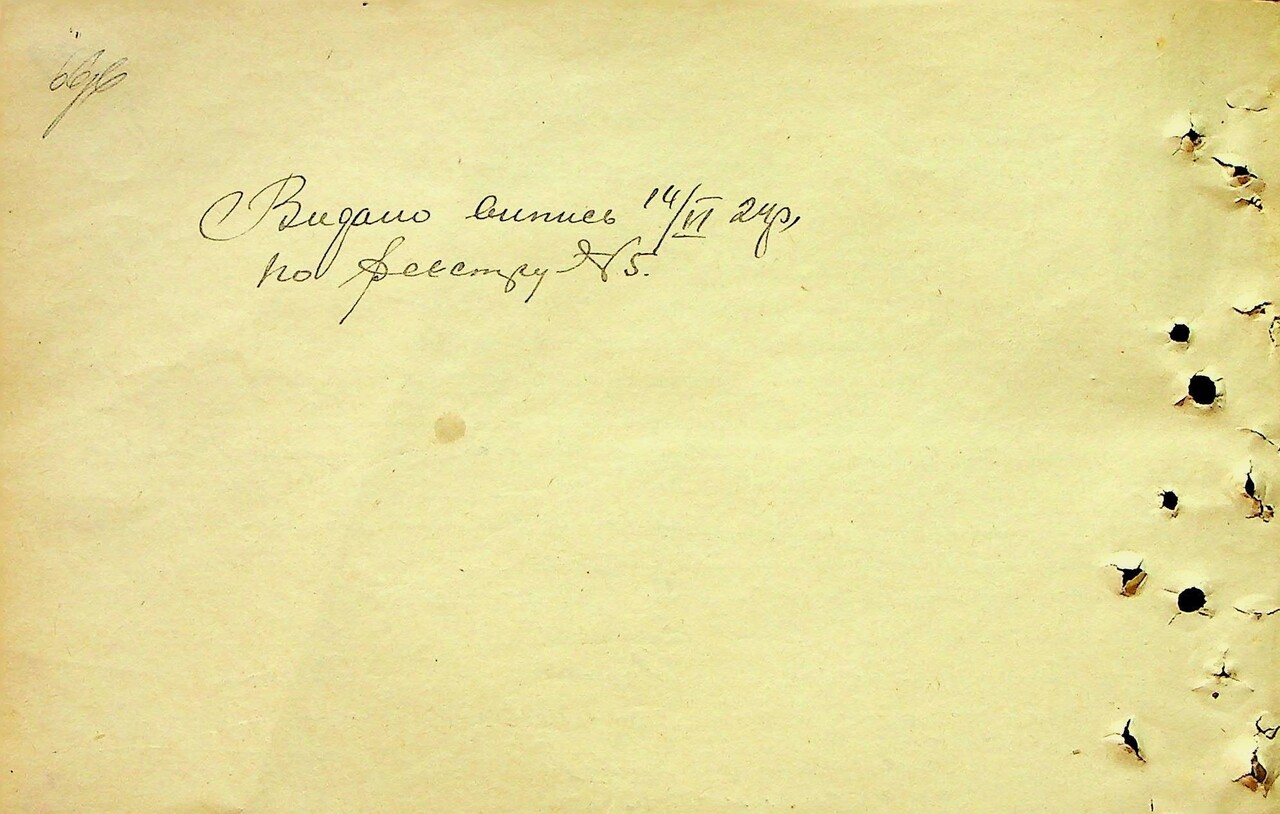 Видано випись 14/VI 24р,
по реєстру № 5.